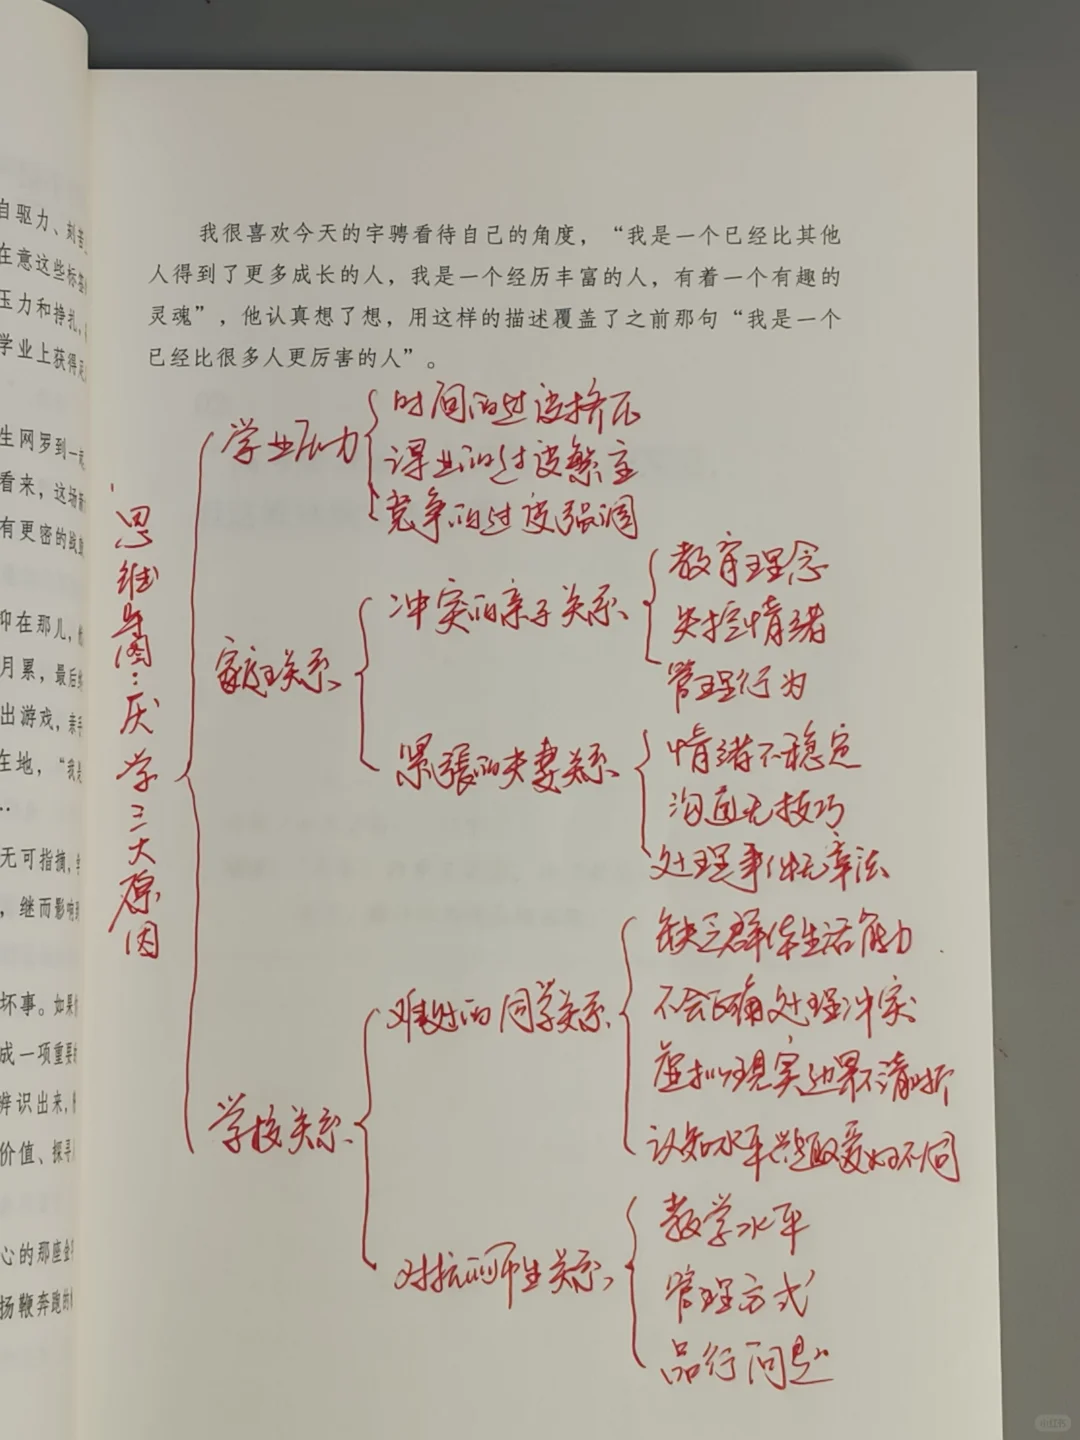 自驱力、刻苦
在意这些标签
压力和挣扎，
学业上获得
生网罗到一
看来，这场
有更密的战
仰在那儿，
月累，最后
出游戏，亲手
在地，“我是
…
无可指摘，
，继而影响
坏事。如果
成一项重要
辨识出来，
价值、探寻
心的那座金
扬鞭奔跑的
我很喜欢今天的宇骋看待自己的角度，“我是一个已经比其他
人得到了更多成长的人，我是一个经历丰富的人，有着一个有趣的
灵魂”，他认真想了想，用这样的描述覆盖了之前那句“我是一个
已经比很多人更厉害的人”。
思维导图：厌学三大原因
学业压力
时间的过度挤压
课业的过度繁重
竞争的过度强调
家庭关系
冲突的亲子关系
教育理念
失控情绪
管理行为
紧张的夫妻关系
情绪不稳定
沟通无技巧
处理事件无章法
学校关系
难处的同学关系
缺乏群体生活能力
不会正确处理冲突
虚拟现实边界不清晰
认知水平兴趣爱好不同
对抗的师生关系
教学水平
管理方式
品行问题